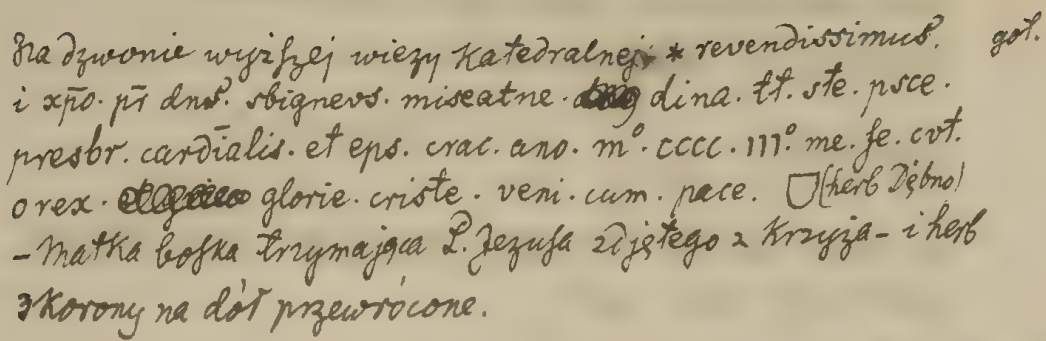 Na dzwonie wyższej wieży Katedralnej: * revendissimus. got.
i xp̄o. pr̄ dns. sbignevs. miseatne. dina. tt. ste. psce.
presbr. cardīalis. et eps. crac. ano. m°. cccc. III°. me. fe. cvt.
o rex. glorie. criste. veni. cum. pace. (herb Dębno)
- Matka boska trzymająca P. Jezusa zdjętego z Krzyża - i herb
3 Korony na dół przewrócone.